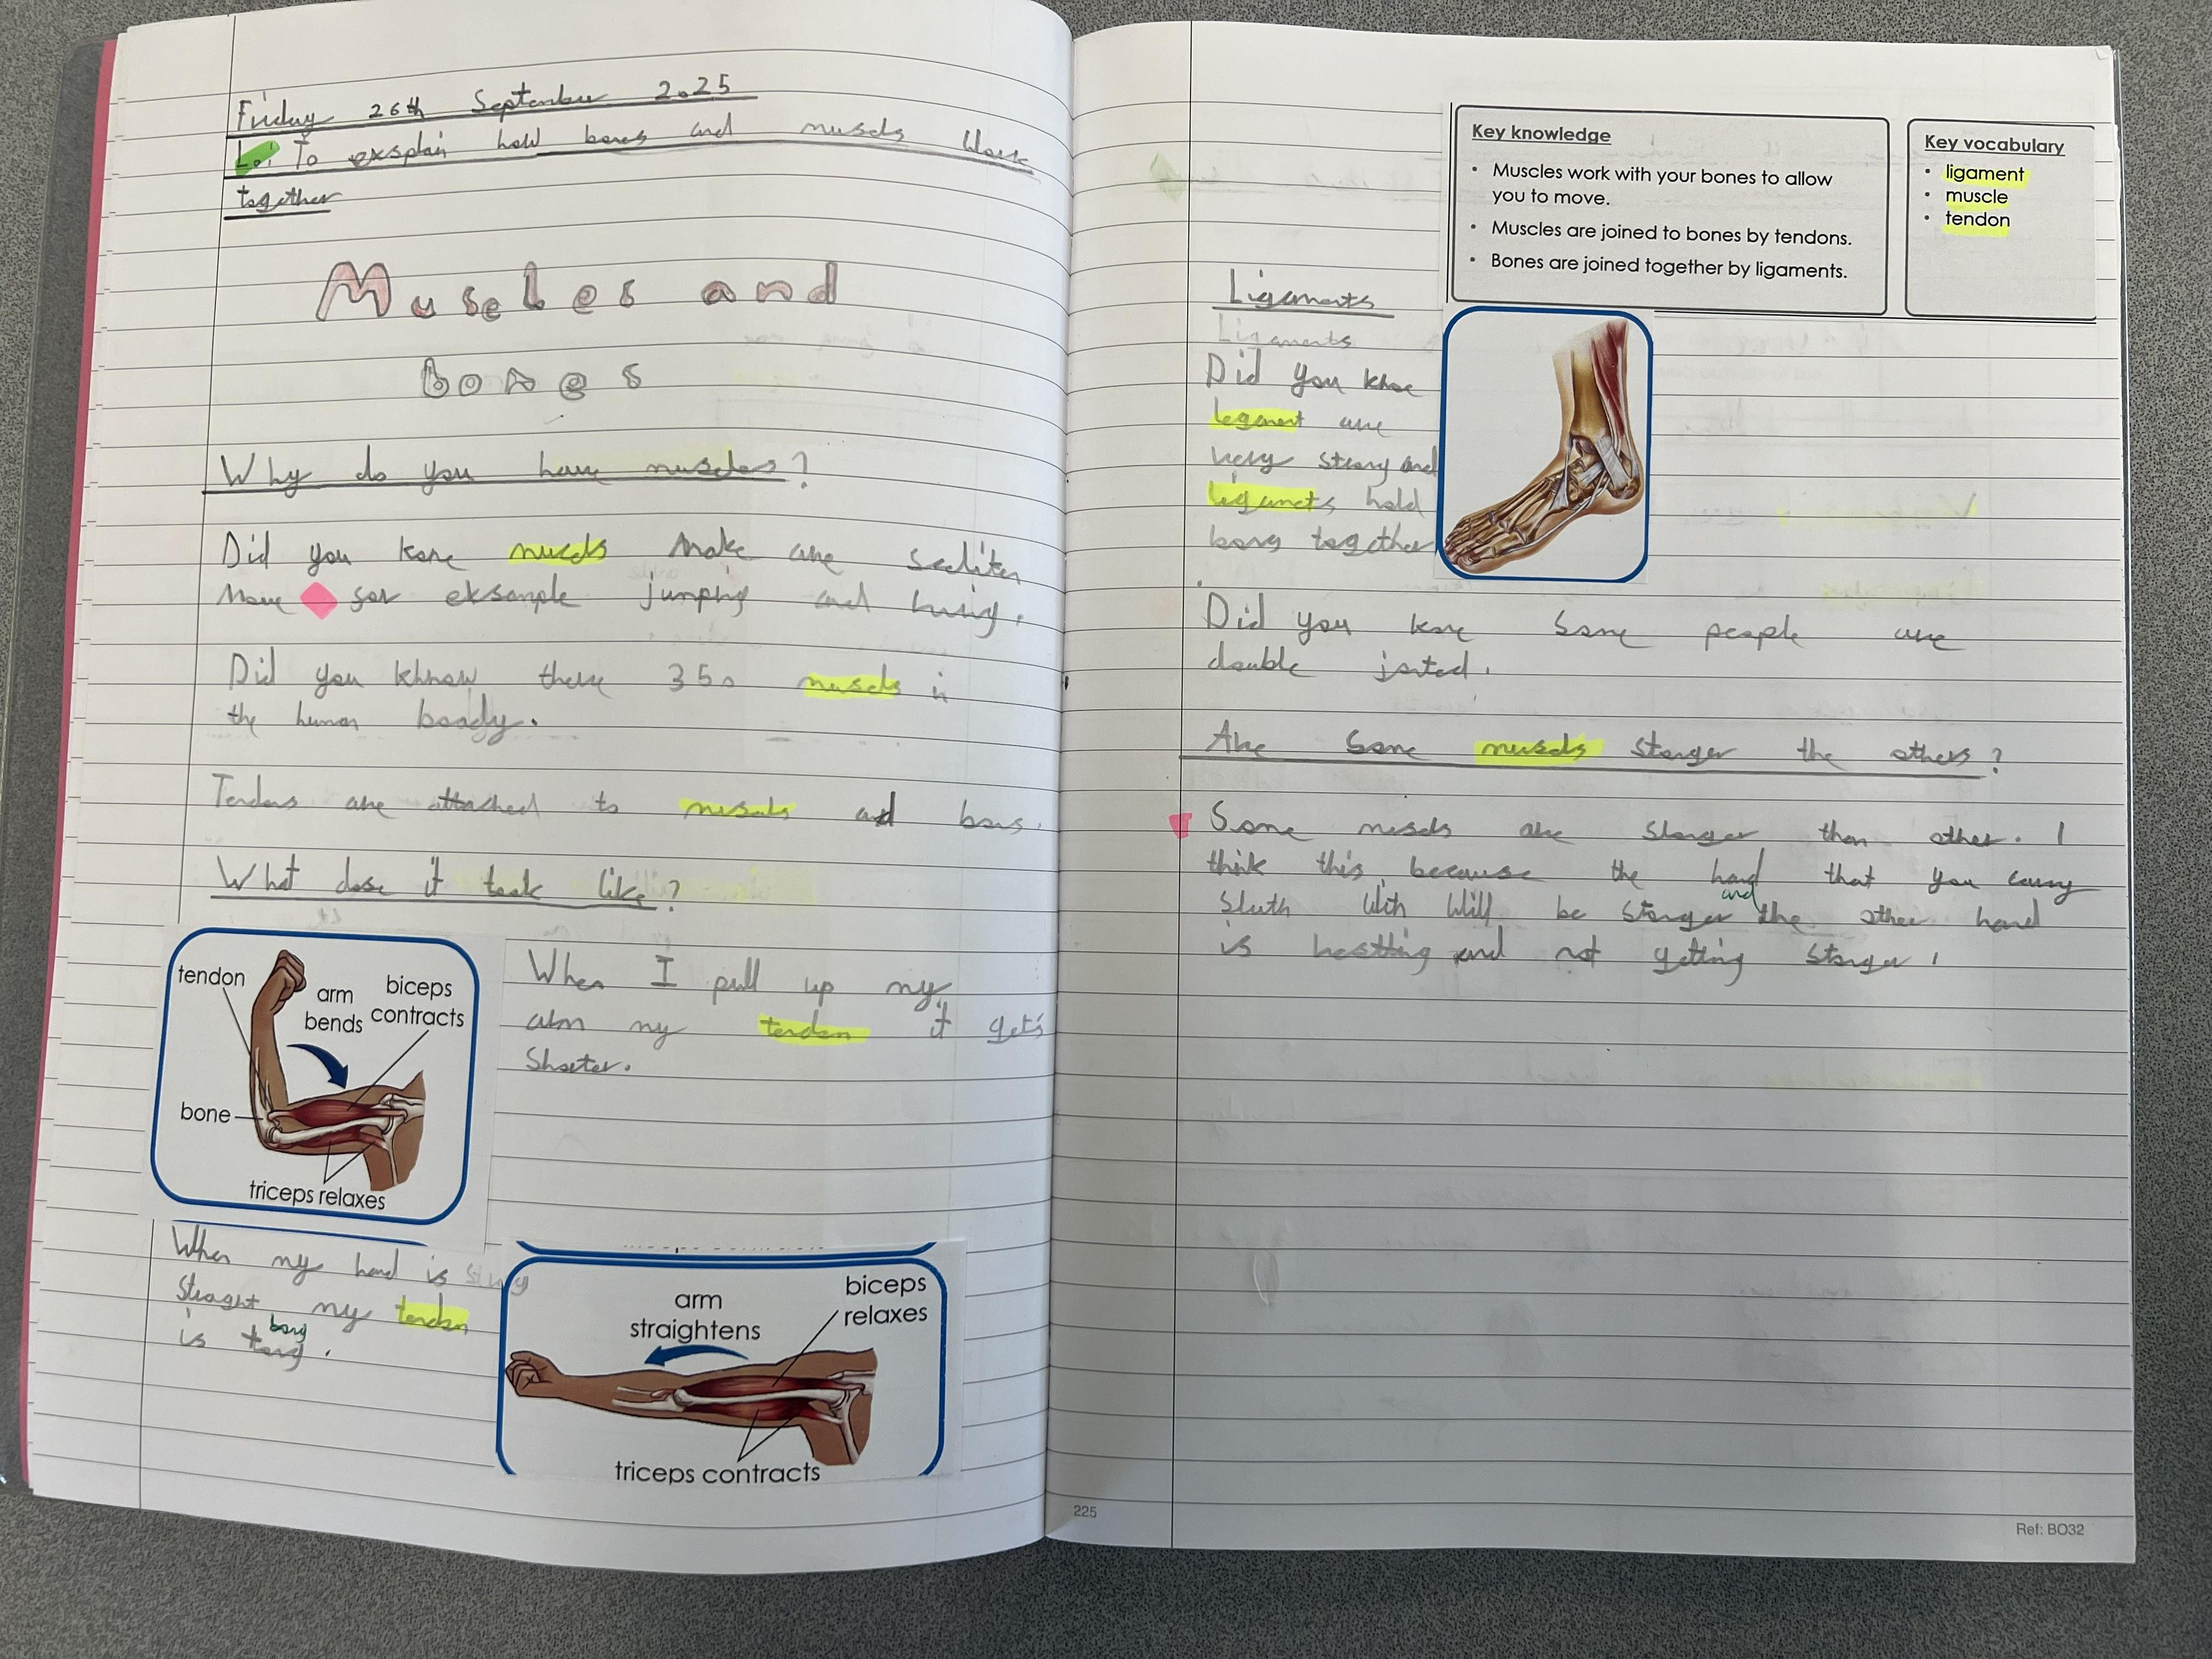 Friday 26th September 2025
Lo: To exsplain how bones and muscls Work
together
Muscles and
bones
Why do you have muscles?
Did you kone muscls make are
move for eksomple jumping and
Did you khnow there 350 muscls in
the human boady.
Tendons are attached to muscals and bons.
What dose it look like?
tendon
arm
bends
biceps
contracts
bone
triceps relaxes
When I pull up my
arm my tendon it gets
Shorter.
When my hand is
straght my tendon
is
long
arm
straightens
biceps
relaxes
triceps contracts
Key knowledge
• Muscles work with your bones to allow
you to move.
• Muscles are joined to bones by tendons.
• Bones are joined together by ligaments.
Key vocabulary
• ligament
• muscle
• tendon
Ligaments
Ligaments
Did you
legament are
very strong and
ligamets hold
bons together
Did you kone Some people are
double jonted.
Are Some muscls stonger the others?
Some muscls are stonger than other. I
think this because the hand that you carry
and
With Will be stonger the other hand
is and not getting stonger.
225
Ref: BO32